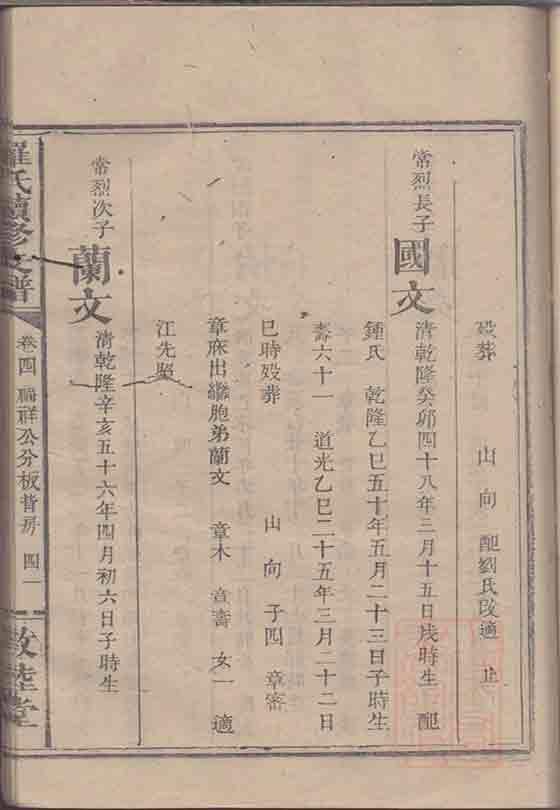 殁葬 山 向 配劉氏改適 止
常烈長子 國文 清乾隆癸卯四十八年三月十五日戌時生 配
鍾氏 乾隆乙巳五十年五月二十三日子時生
壽六十一 道光乙巳二十五年三月二十二日
巳時殁葬 山 向 子四 章密
章庥出繼胞弟蘭文 章木 章壽 女一 適
汪先照
常烈次子 蘭文 清乾隆辛亥五十六年四月初六日子時生
羅氏續修支譜 卷四 公分板背房 四一 敦睦堂